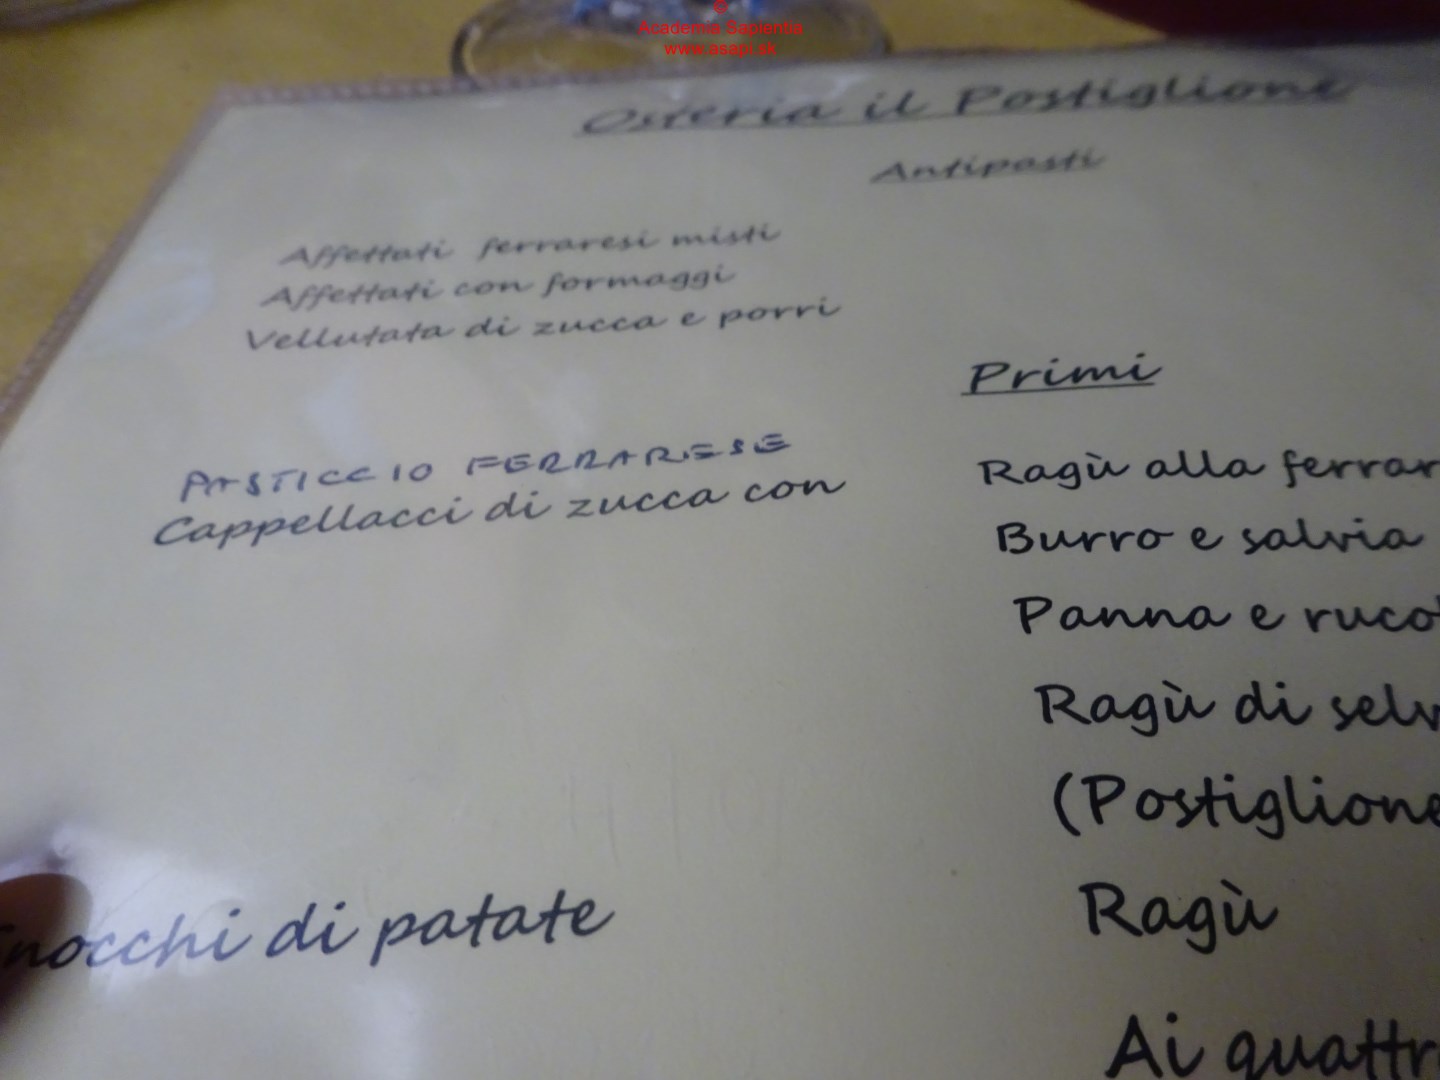 Academia Sapientia
www.asapi.sk
Osteria il Postiglione
Antipasti
Affettati ferraresi misti
Affettati con formaggi
Vellutata di zucca e porri
Primi
PASTICCIO FERRARESE
Cappellacci di zucca con
Ragù alla ferrar
Burro e salvia
Panna e ruco
Ragù di selv
(Postiglione
Gnocchi di patate
Ragù
Ai quattr